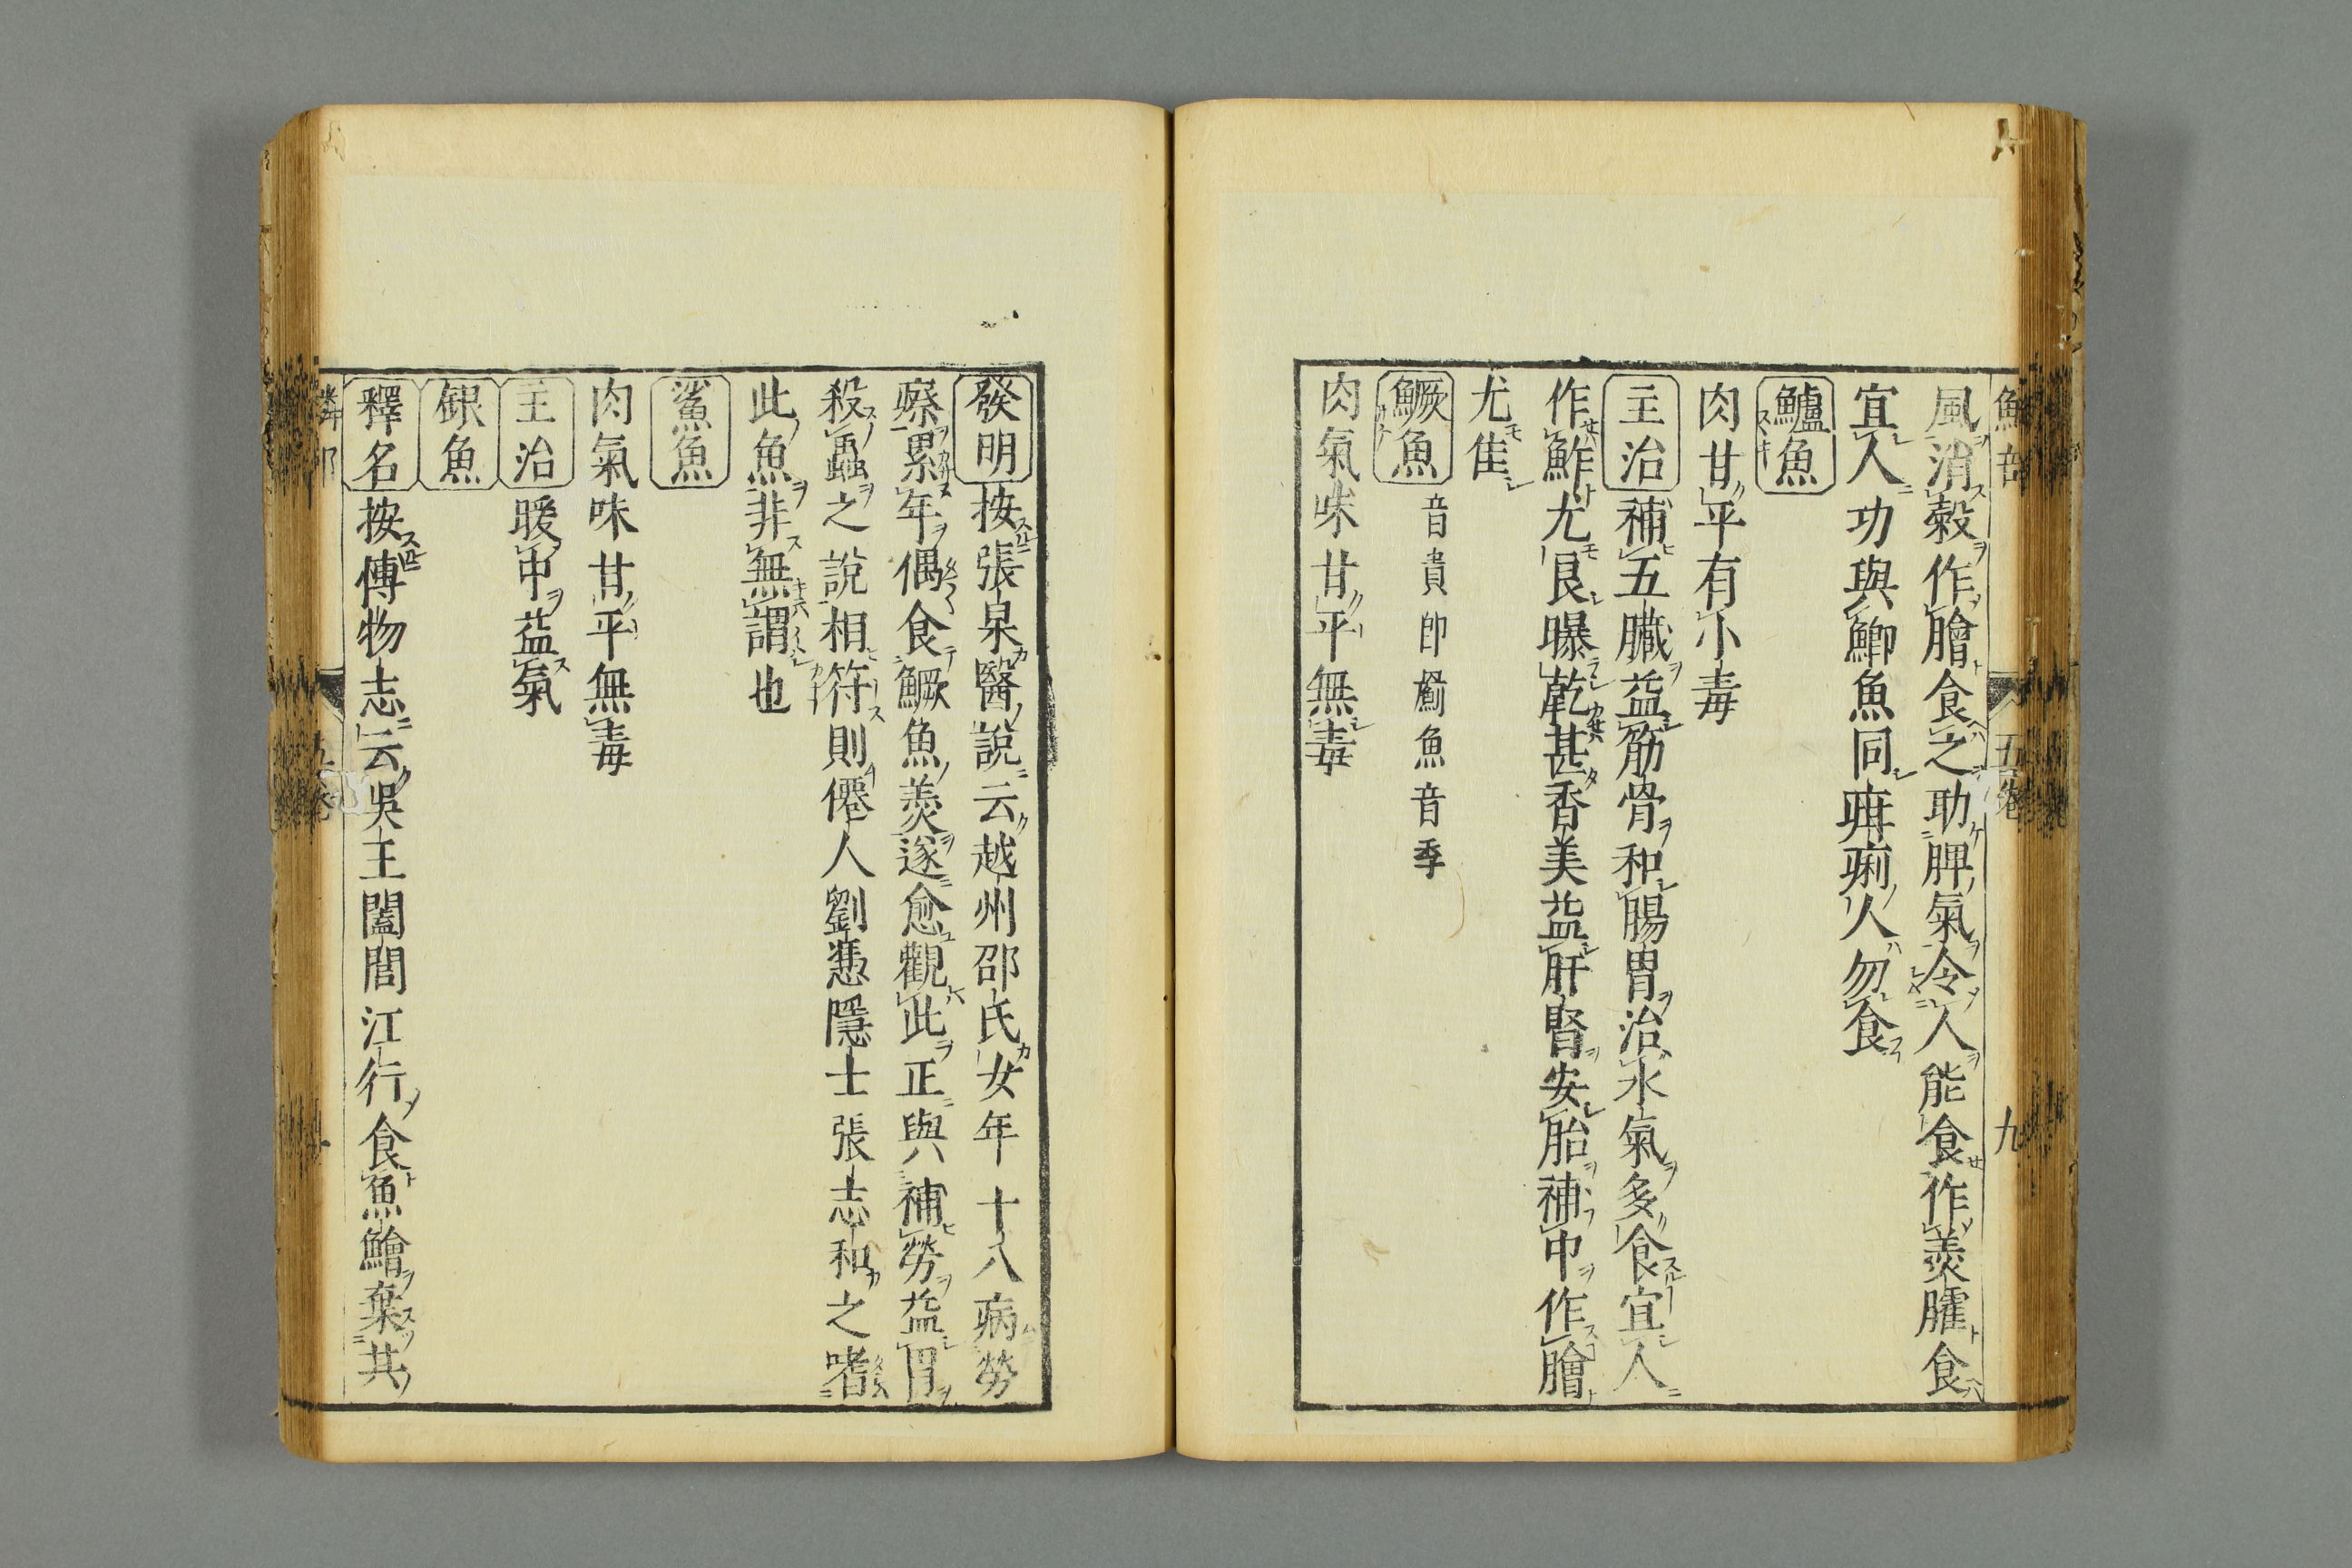 風消穀作膾食之助脾氣令人能食作羨臛食
宜人功與鯽魚同疳痢人勿食
鱸魚
肉甘平有小毒
主治補五臟益筋骨和腸胃治水氣多食宜人
作鮓尤良曝乾甚香美益肝腎安胎補中作膾
尤佳
鱖魚 音貴即罽魚音季
肉氣味甘平無毒
五卷
九
發明按張杲醫說云越州邵氏女年十八病勞
瘵累年偶食鱖魚羨遂愈觀此正與補勞益胃
殺蟲之說相符則僊人劉憑隱士張志和之嗜
此魚非無謂也
鯊魚
肉氣味甘平無毒
主治暖中益氣
銀魚
釋名按傅物志云吳王闔閭江行食魚鱠棄其